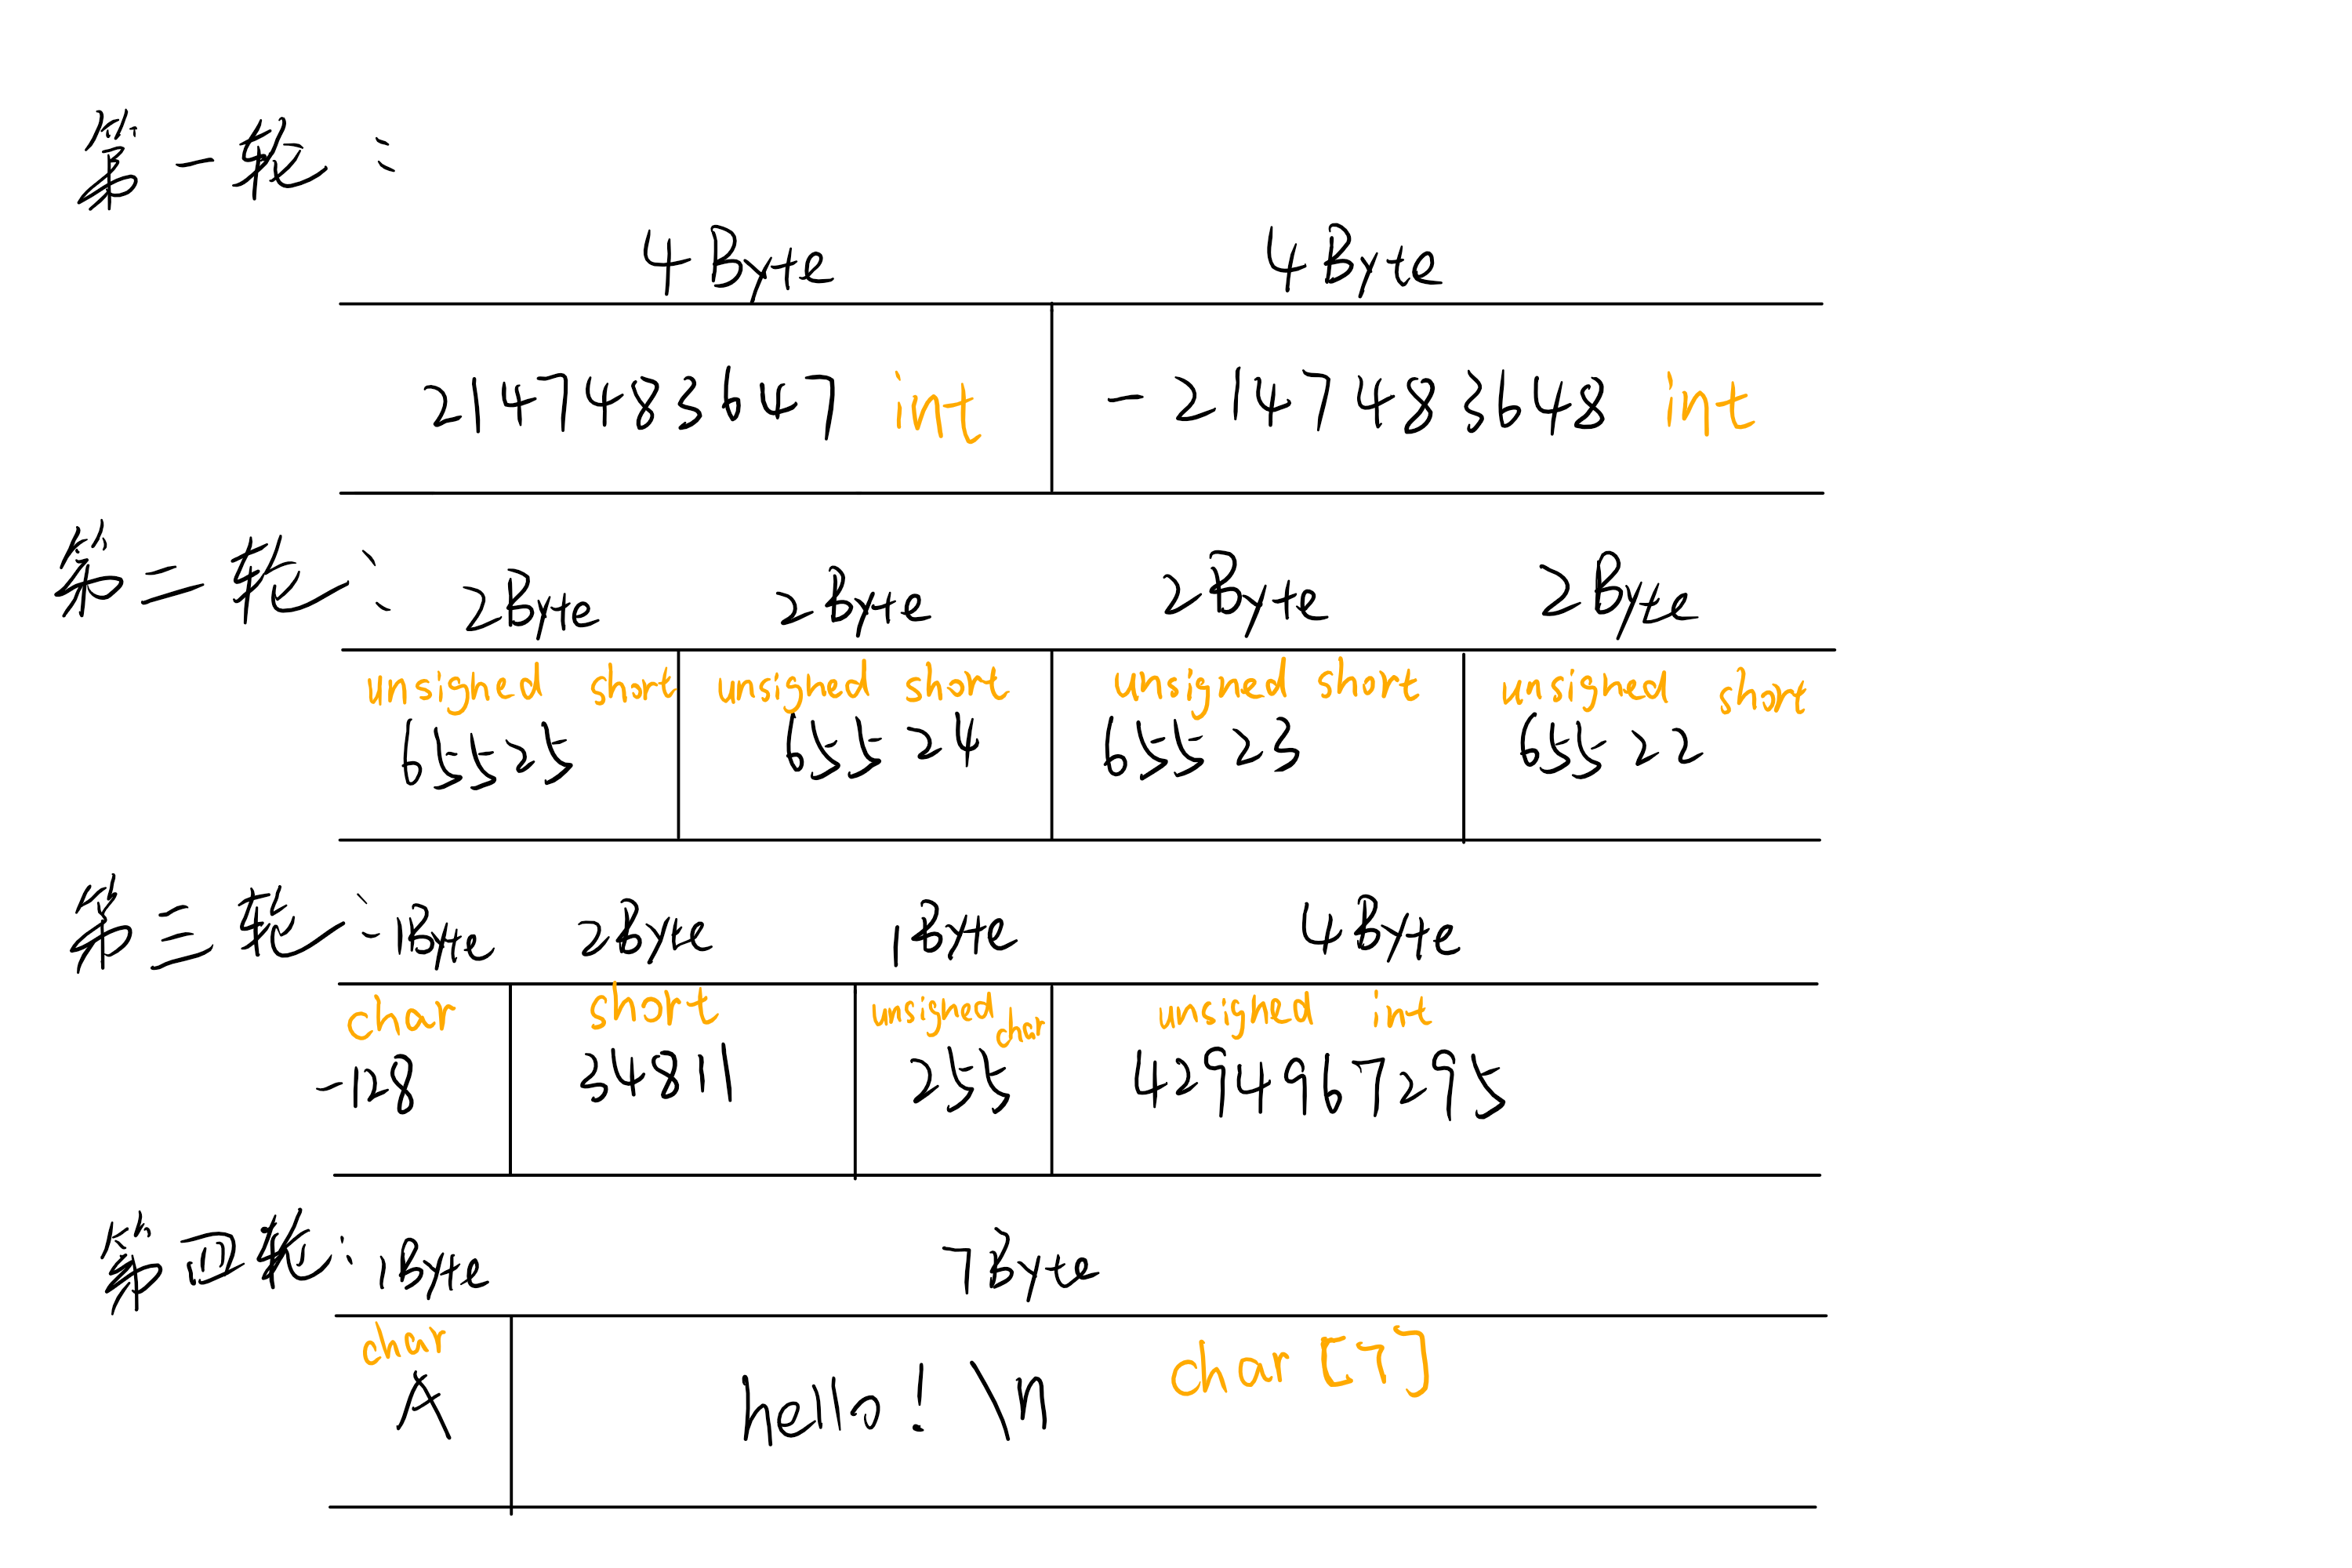 第一轮：
4Byte 4Byte
2147483647 int -2147483648 int
第二轮：
2Byte 2Byte 2Byte 2Byte
unsigned short unsigned short unsigned short unsigned short
65525 65524 65523 65522
第三轮：
1Byte 2Byte 1Byte 4Byte
char short unsigned char unsigned int
-128 255 4294967295
第四轮：
1Byte 7Byte
char
A hello!\n char[7]